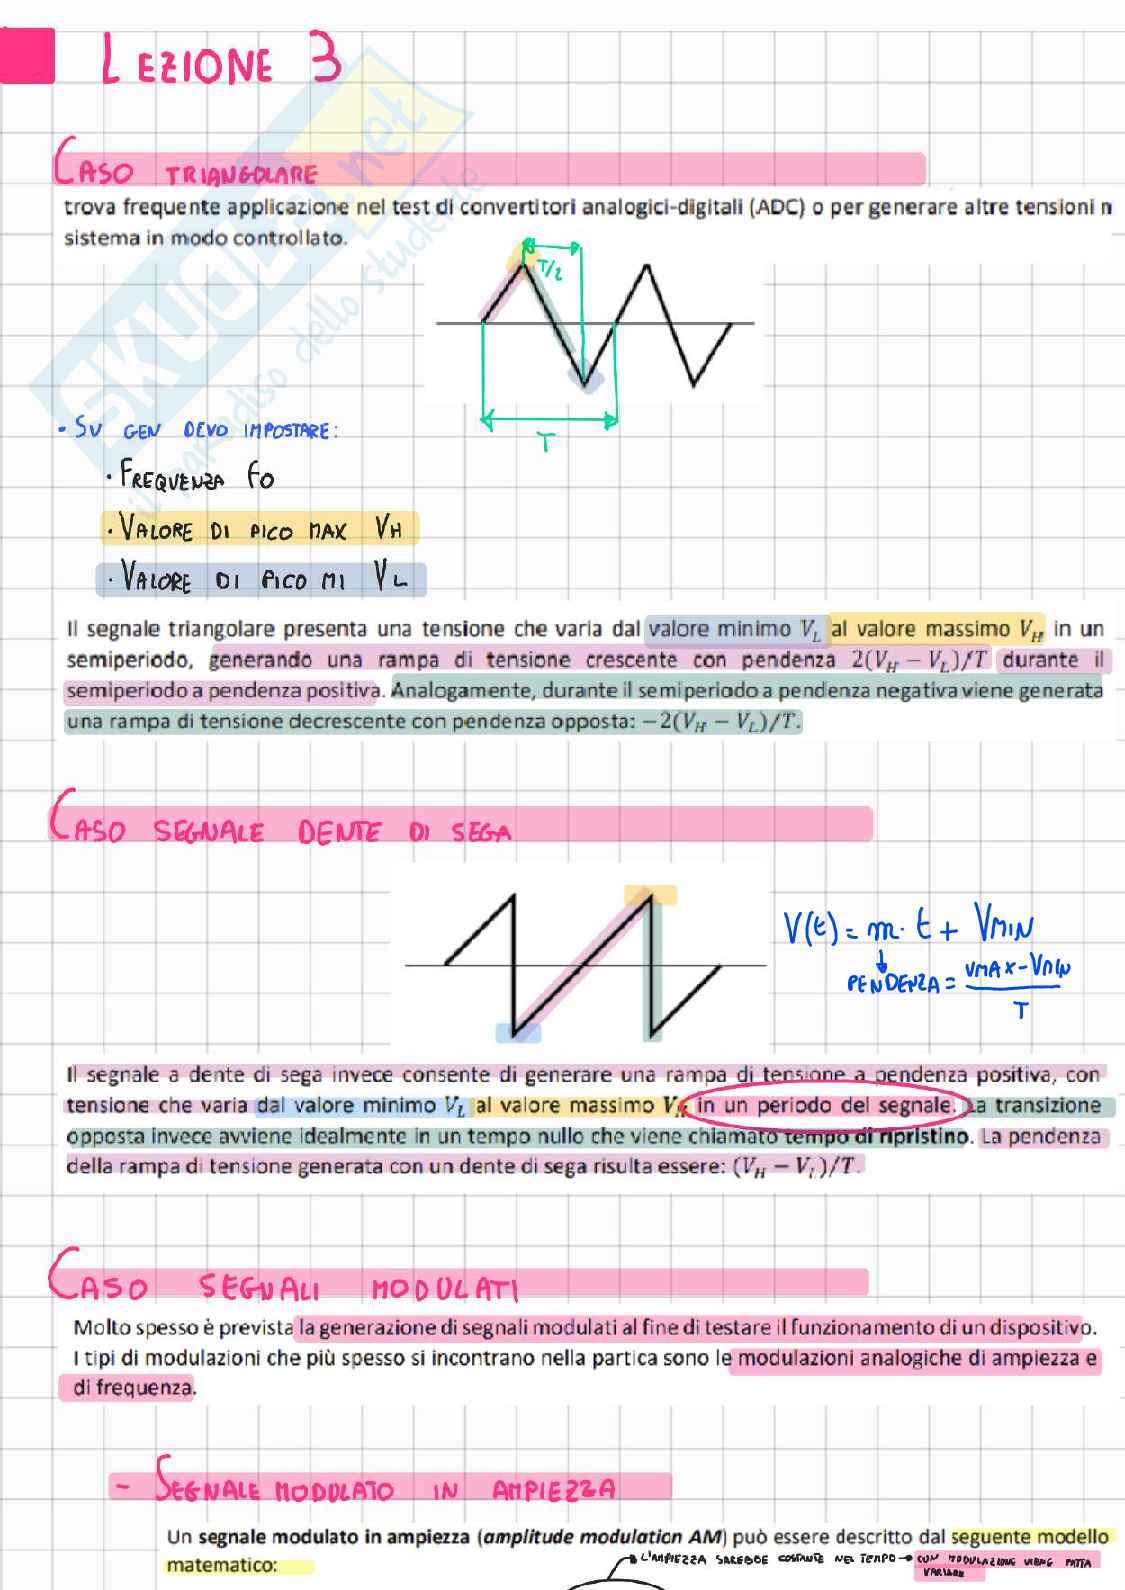 LEZIONE 3
CASO TRIANGOLARE
trova frequente applicazione nel test di convertitori analogici-digitali (ADC) o per generare altre tensioni n
sistema in modo controllato.
T/2
T
• SU GEN DEVO IMPOSTARE:
• FREQUENZA f0
• VALORE DI PICO MAX VH
• VALORE DI PICO MI VL
Il segnale triangolare presenta una tensione che varia dal valore minimo V_L al valore massimo V_H in un
semiperiodo, generando una rampa di tensione crescente con pendenza 2(V_H − V_L)/T durante il
semiperiodo a pendenza positiva. Analogamente, durante il semiperiodo a pendenza negativa viene generata
una rampa di tensione decrescente con pendenza opposta: −2(V_H − V_L)/T.
CASO SEGNALE DENTE DI SEGA
V(t) = m · t + VMIN
PENDENZA = VMAX - VMIN
T
Il segnale a dente di sega invece consente di generare una rampa di tensione a pendenza positiva, con
tensione che varia dal valore minimo V_L al valore massimo V_H in un periodo del segnale. La transizione
opposta invece avviene idealmente in un tempo nullo che viene chiamato tempo di ripristino. La pendenza
della rampa di tensione generata con un dente di sega risulta essere: (V_H − V_L)/T.
CASO SEGNALI MODULATI
Molto spesso è prevista la generazione di segnali modulati al fine di testare il funzionamento di un dispositivo.
I tipi di modulazioni che più spesso si incontrano nella partica sono le modulazioni analogiche di ampiezza e
di frequenza.
- SEGNALE MODULATO IN AMPIEZZA
Un segnale modulato in ampiezza (amplitude modulation AM) può essere descritto dal seguente modello
matematico:
L'AMPIEZZA SAREBBE COSTANTE NEL TEMPO → CON MODULAZIONE VIENE FATTA
VARIARE
SKUOLA.net
il paradiso dello studente